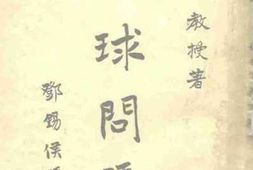 教授著
球問
鄧錫侯